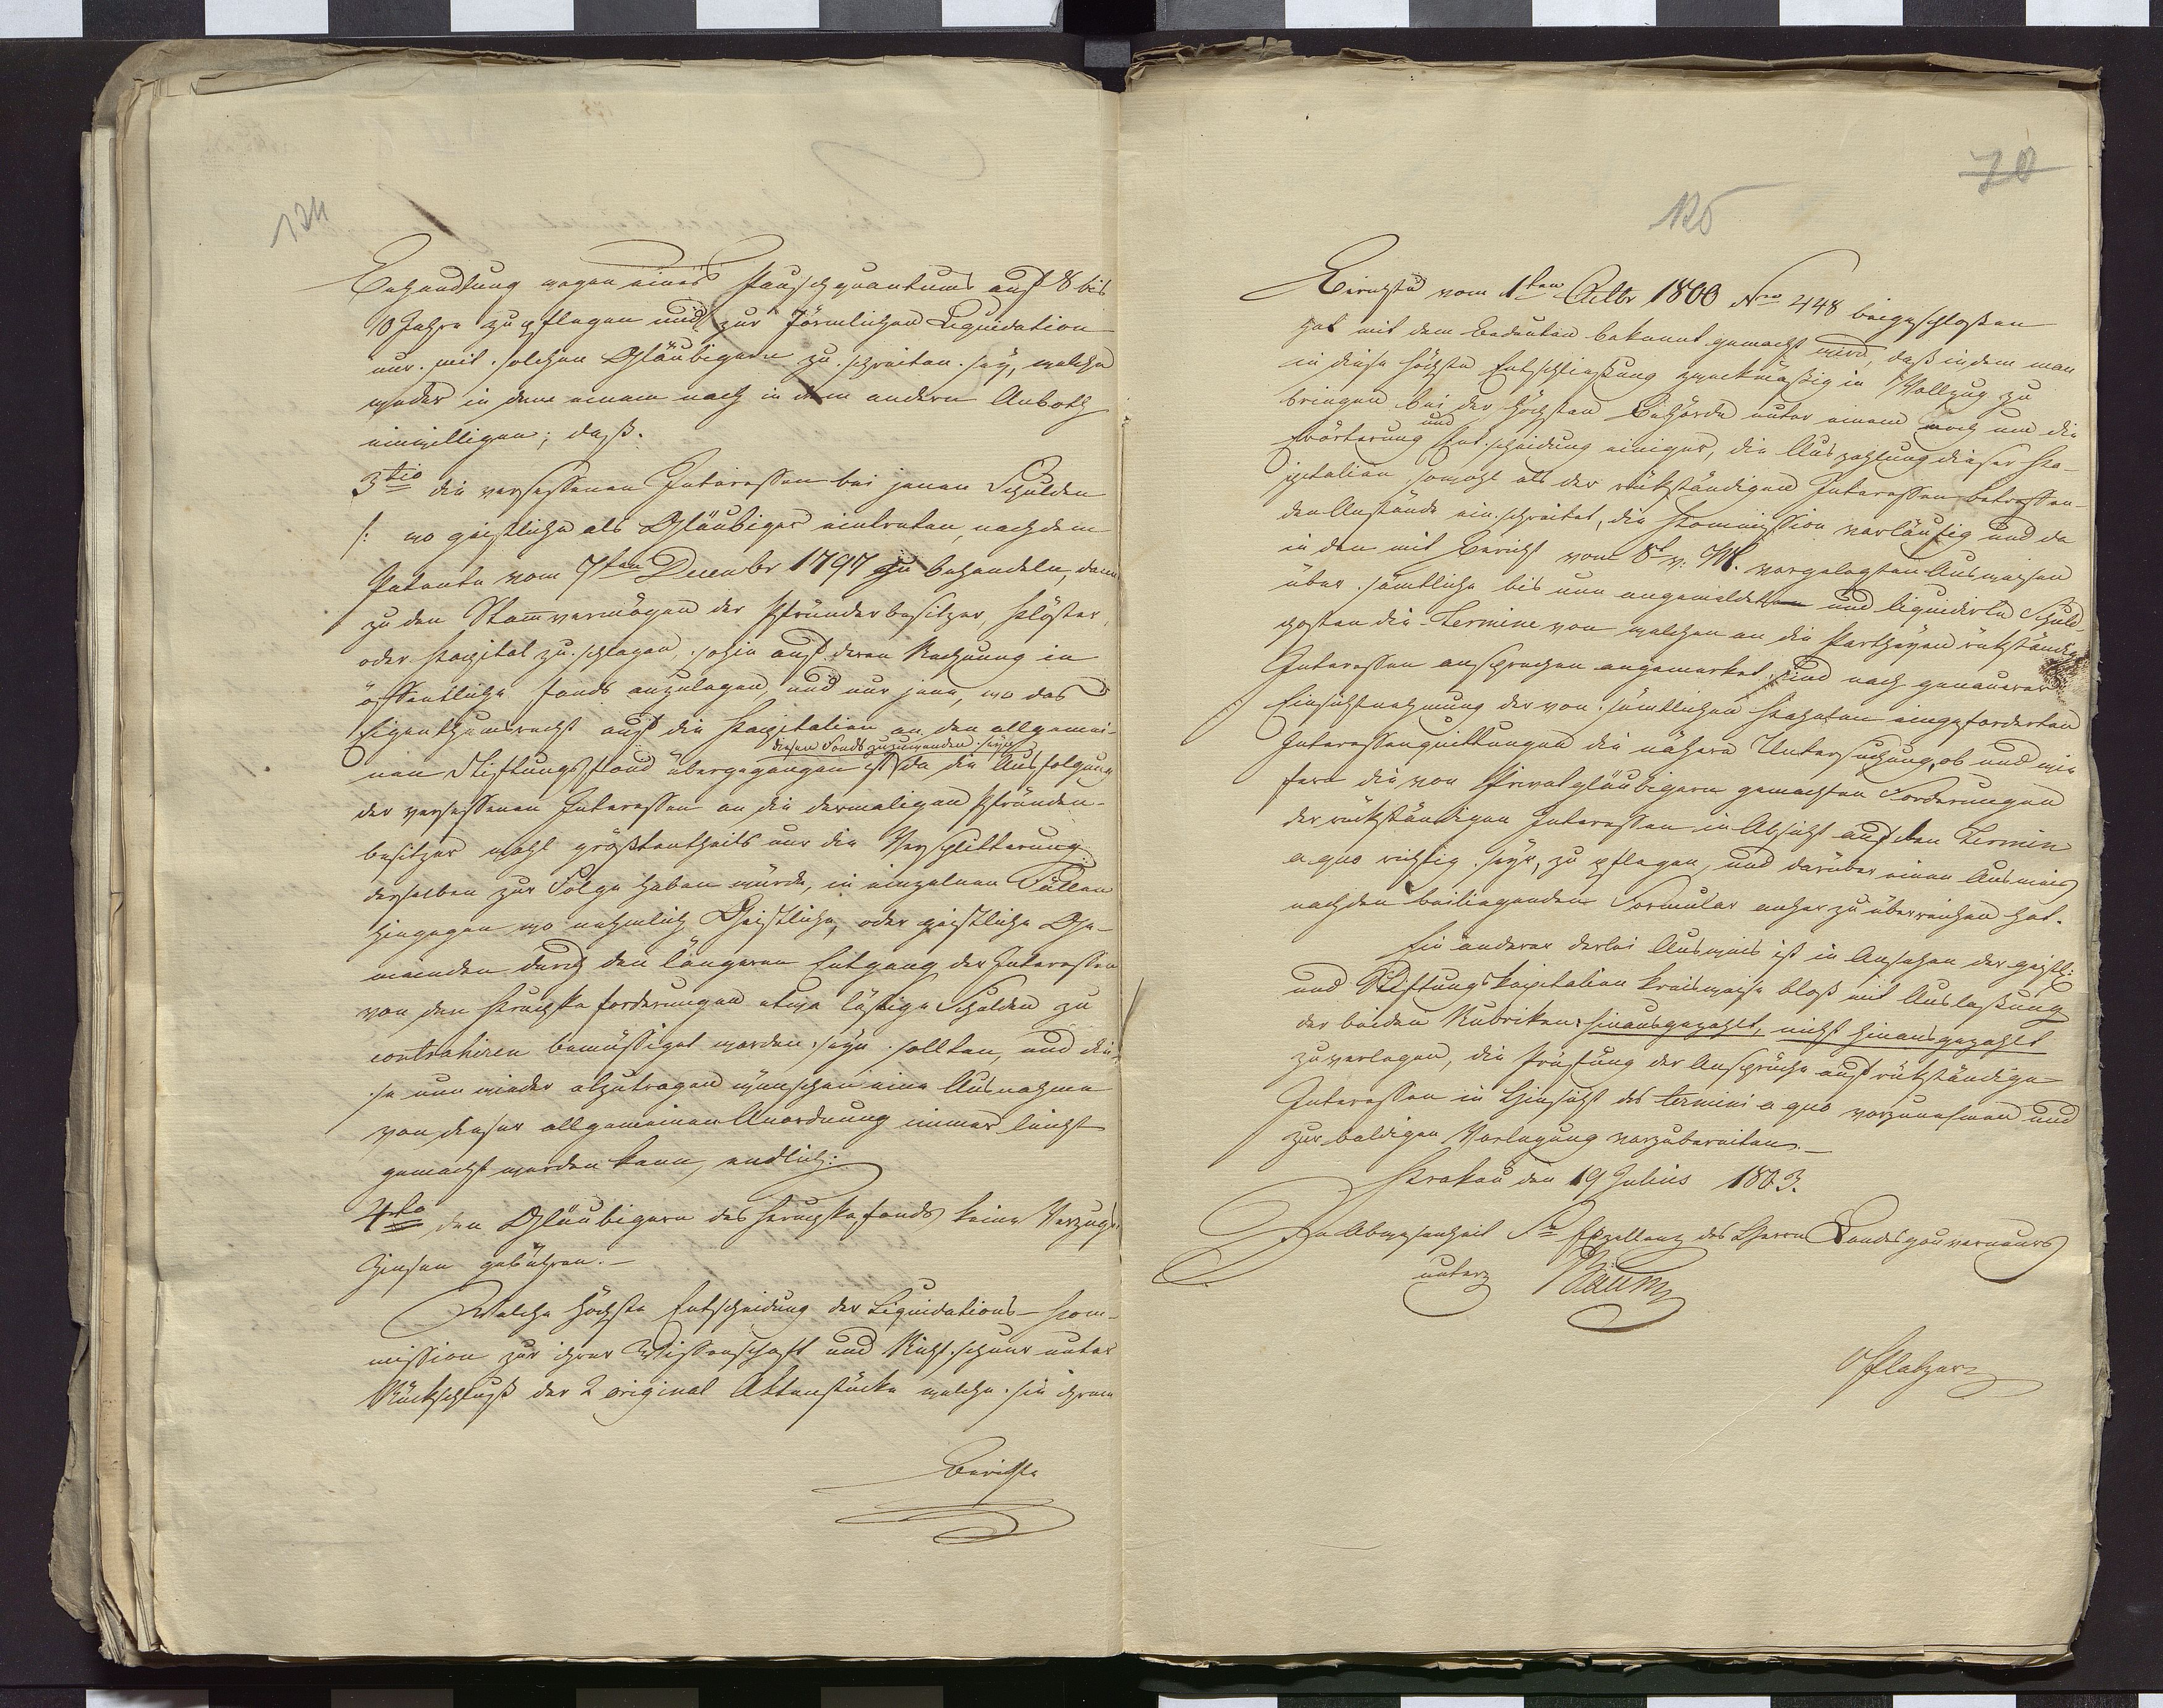 124
Behandlung wegen eines Pauschquantums auf 8 bis
10 Jahre zu pflegen und zur förmlichen Liquidation
nur mit solchen Gläubigern zu schreiten sey, welche
weder in dem einem noch in dem andern Anboth
einwilligen; daß.
3tio die versessenen Interessen bei jenen Schulden
/: wo geistliche als Gläubiger eintreten, nach dem
Patente vom 7ten December 1797 zu behandeln, dann
zu den Stammvermögen der Pfründerbesitzer, Klöster,
oder Kapital zu schlagen, sohin auf deren Rechnung in
öffentliche Fonds anzulegen, und nur jene, wo das
Eigenthumsrecht auf die Kapitalien an den allgemei-
diesen Fonds zuzuwenden seyen
nen Stiftungsfond übergegangen ist da die Ausfolgung
der versessenen Interessen an die dermaligen Pfründen-
besitzer wohl größtentheils nur die Versplitterung
derselben zur Folge haben würde, in einzelnen Fällen
hingegen wo nehmlich Geistliche, oder geistliche Ge-
meinden durch den längeren Entgang der Interessen
von den forderungen etwa lästige Schulden zu
contrahiren bemüssiget worden seyn sollten, und die-
se nun wieder abzutragen wünschen eine Ausnahme
von dieser allgemeinen Anordnung immer leicht
gemacht werden kann, endlich:
4to den Gläubigern des fonds keine Verzugs-
Zinsen gebühren. —
Welche höchste Entscheidung der Liquidations-Kom-
mission zur ihrer Wissenschaft und Richtschnur unter
Rückschluß der 2 original Aktenstücke welche sie ihrem
Berichte
70
125
vom 1ten Octbr 1800 Nro 448 beigeschloßen
hat mit dem Bedeuten bekannt gemacht wird, daß indem man
in diese höchste Entschließung zweckmäßig in Vollzug zu
bringen bei der höchsten Behörde unter einem noch um die
und
Erörterung Entscheidung einiger, die Auszahlung dieser Ka-
pitalien sowohl als der rükständigen Interessen betreffen-
den Anstände einschreitet, die Kommission vorläufig und da
in den mit Bericht vom 8t v: M. vorgelegten Ausweisen
über sämtliche bis nun angemeldete und liquidirte Schuld-
posten die Termine von welchen an die Partheyen rükständige
Interessen ansprechen angemerket sind nach genauerer
Einsichtnehmung der von sämtlichen eingeforderten
Interessenquittungen die nähere Untersuchung, ob und wie
fern die von Privatgläubigern gemachten Forderungen
der rükständigen Interessen in Absicht auf den Termin
a quo richtig seye, zu pflegen, und darüber einen Ausweis
nach dem beiliegenden Formular anher zu überreichen hat.
Ein anderer derlei Ausweis ist in Ansehen der geistl:
und Stiftungskapitalien kreisweise bloß mit Auslaßung
der beiden Rubriken: hinausgezahlt, nicht hinausgezahlt
zu verlegen, die Prüfung der Ansprüche auf rükständige
Interessen in Hinsicht des termini a quo vorzunehmen und
zur baldigen Vorlegung vorzubereiten. —
Krakau den 19 Julius 1803.
In Abwesenheit Sr Exzellenz des Herrn Landesgouverneurs
Baum